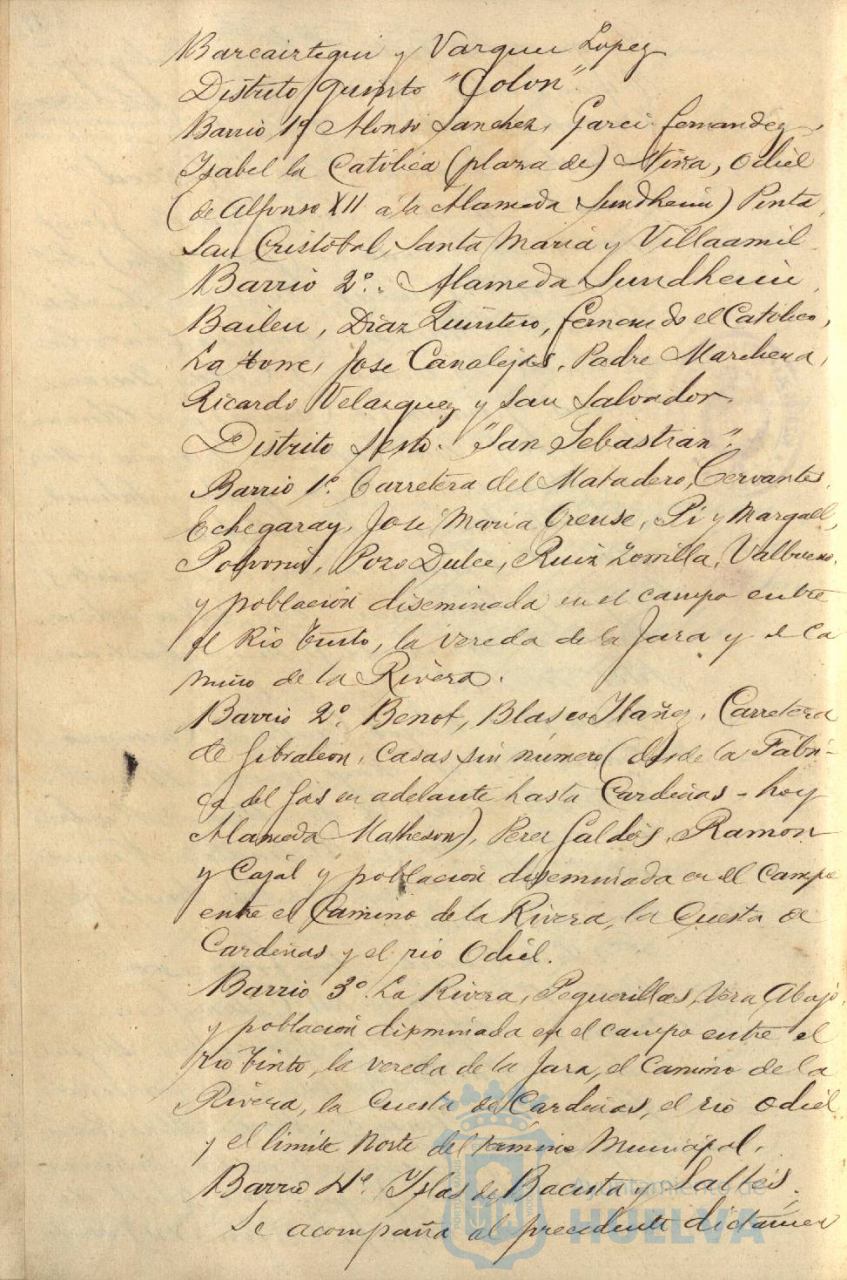 Barcaiztegui y Varquer Lopez
Distrito quinto "Colon".
Barrio 1º Alonso Sanchez, Garci-Fernandez,
Ysabel la Católica (plaza de) Niña, Odiel
(de Alfonso XII á la Alameda Sundheim) Pinta,
San Cristobal, Santa Maria y Villaamil
Barrio 2º. Alameda Sundheim,
Bailen, Diaz Quintero, Fernando el Católico,
La torre, José Canalejas, Padre Marchena,
Ricardo Velazquez y San Salvador
Distrito Sexto. "San Sebastián".
Barrio 1º. Carretera del Matadero, Cervantes,
Echegaray, José Maria Orense, Pi y Margall,
Polvorin, Pozo Dulce, Ruiz Zorrilla, Valbuena,
y población diseminada en el campo entre
el Rio Tinto, la vereda de la Jara y el Ca
mino de la Rivera.
Barrio 2º. Benot, Blasco Ibañez, Carretera
de Gibraleon, casas sin número (desde la Fábri-
ca del Gas en adelante hasta Cardeñas - hoy
Alameda Matheson), Perez Galdós, Ramon
y Cajál y población diseminada en el campo
entre el Camino de la Rivera, la Cuesta de
Cardeñas y el rio Odiel.
Barrio 3º. La Rivera, Peguerillas, Vera Abajo,
y población diseminada en el campo entre el
rio Tinto, la vereda de la Jara, el Camino de la
Rivera, la Cuesta de Cardeñas, el rio Odiel
y el limite Norte del término Municipal.
Barrio 4º. Yslas de Bacuta y Saltés.
Se acompaña al precedente dictámen
Ayuntamiento de
HUELVA